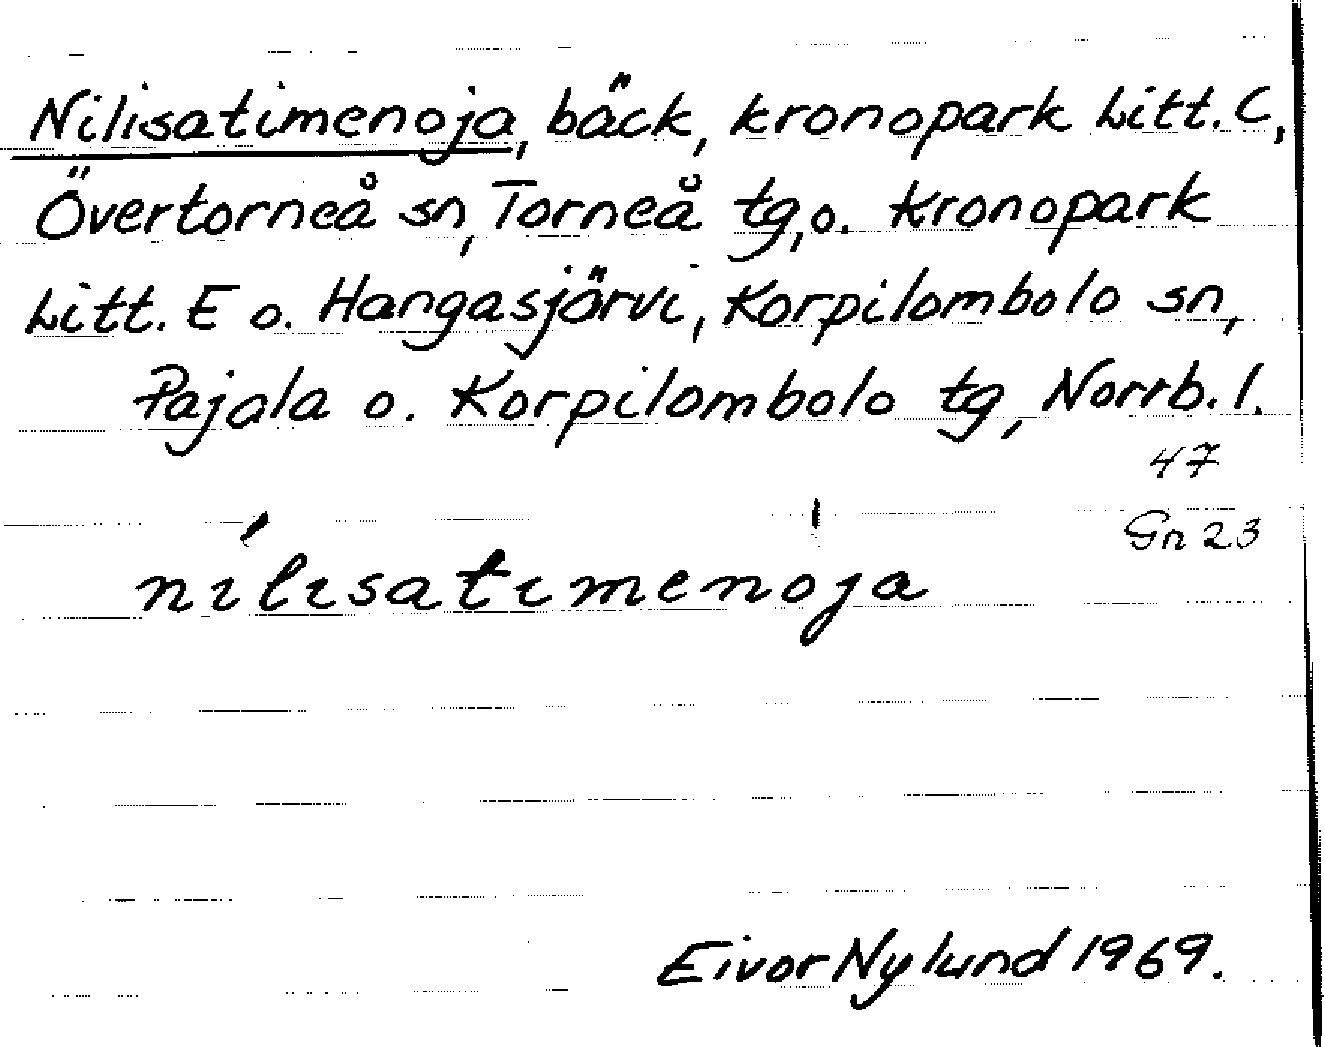 Nilisatimenoja, bäck, kronopark Litt. C,
Övertorneå sn, Torneå tg, o. kronopark
Litt. E o. Hangasjärvi, Korpilombolo sn,
Pajala o. Korpilombolo tg, Norrb. l.
47
Gn 23
nílisatimenoja
Eivor Nylund 1969.